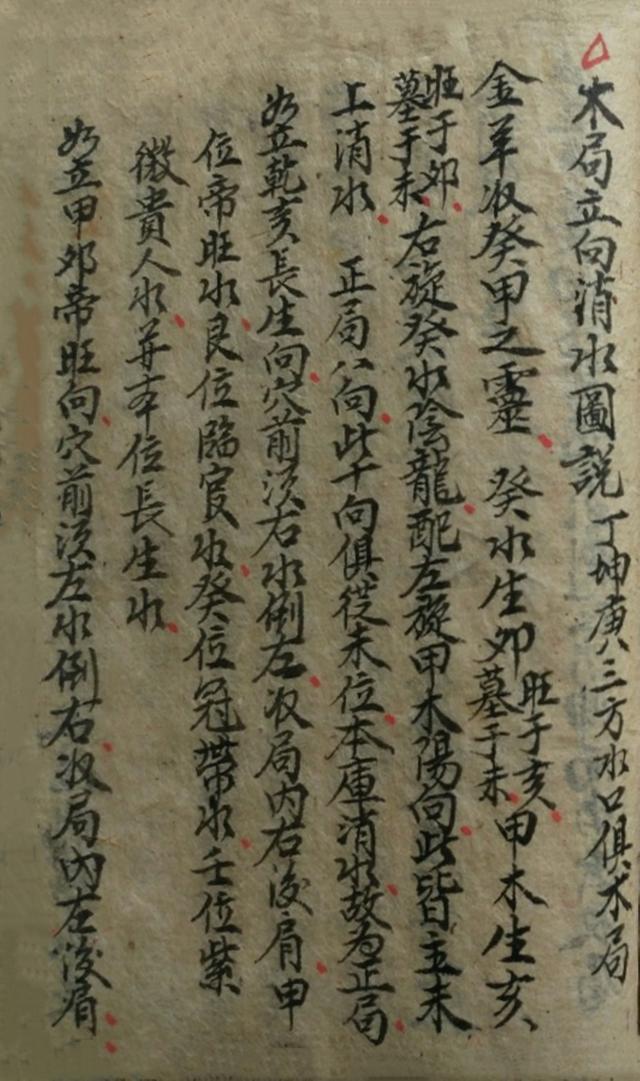 木局立向消水圖說 丁坤庚三方水口俱木局
金羊收癸甲之靈 癸水生卯旺于亥墓于未甲木生亥
旺于卯墓于未右旋癸水陰龍配左旋甲木陽向此皆主未
上消水 正局八向此千向俱從未位本庫消水故為正局
如立乾亥長生向穴前須右水倒左收局內右後肩申
位帝旺水艮位臨官水癸位冠帶水壬位紫
微貴人水并本位長生水
如立甲卯帝旺向穴前須左水倒右收局內左後肩